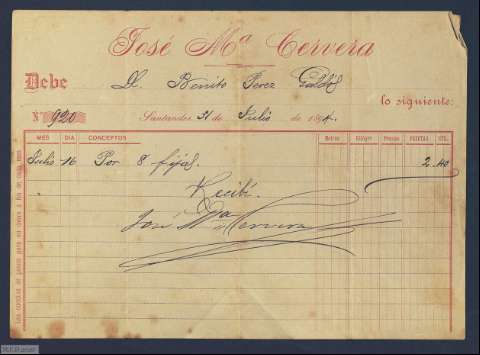 José Mª Cervera
Debe D. Benito Perez Galdós
lo siguiente:
Nº 920 Santander 31 de Julio de 1894.
MES DIA CONCEPTOS Metros Precio PESETAS CTS.
Julio 16 Por 8 fijas. 2 40
Recibí.
José Mª Cervera